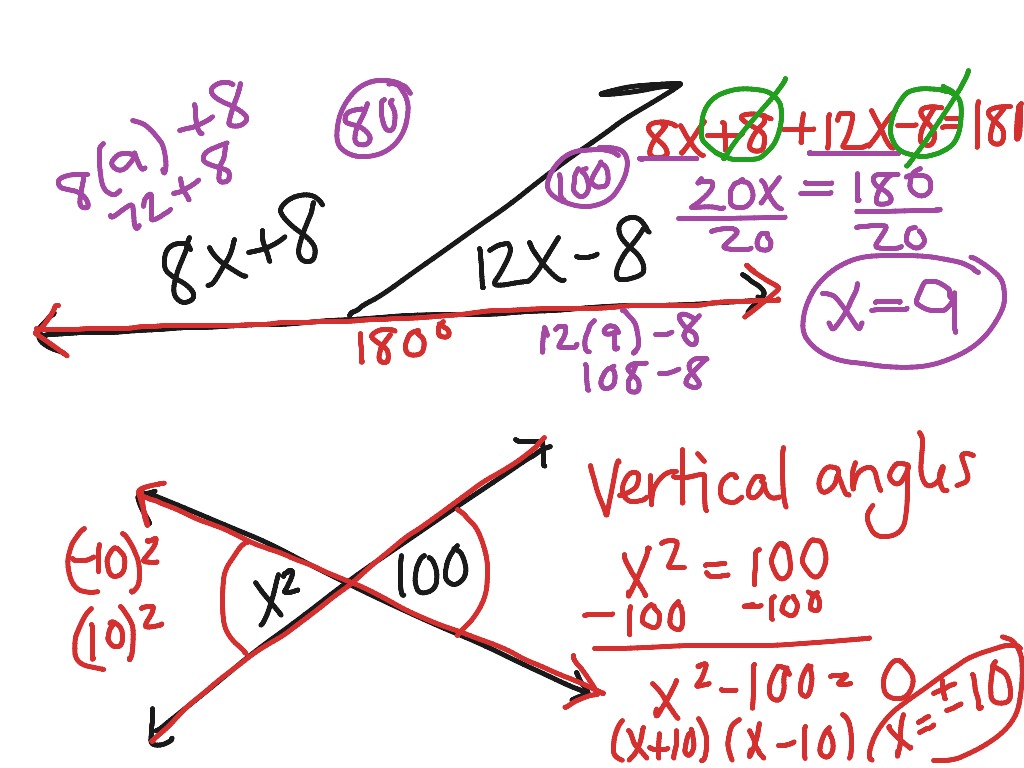 8(9) + 8
72 + 8
80
8x+8
100
12x-8
180°
12(9) - 8
108 - 8
8x+8 + 12x-8 = 181
20x = 180
20 20
x = 9
(-10)²
(10)²
x²
100
Vertical angles
x² = 100
-100 -100
x² - 100 = 0
(x+10) (x-10)
x = ±10